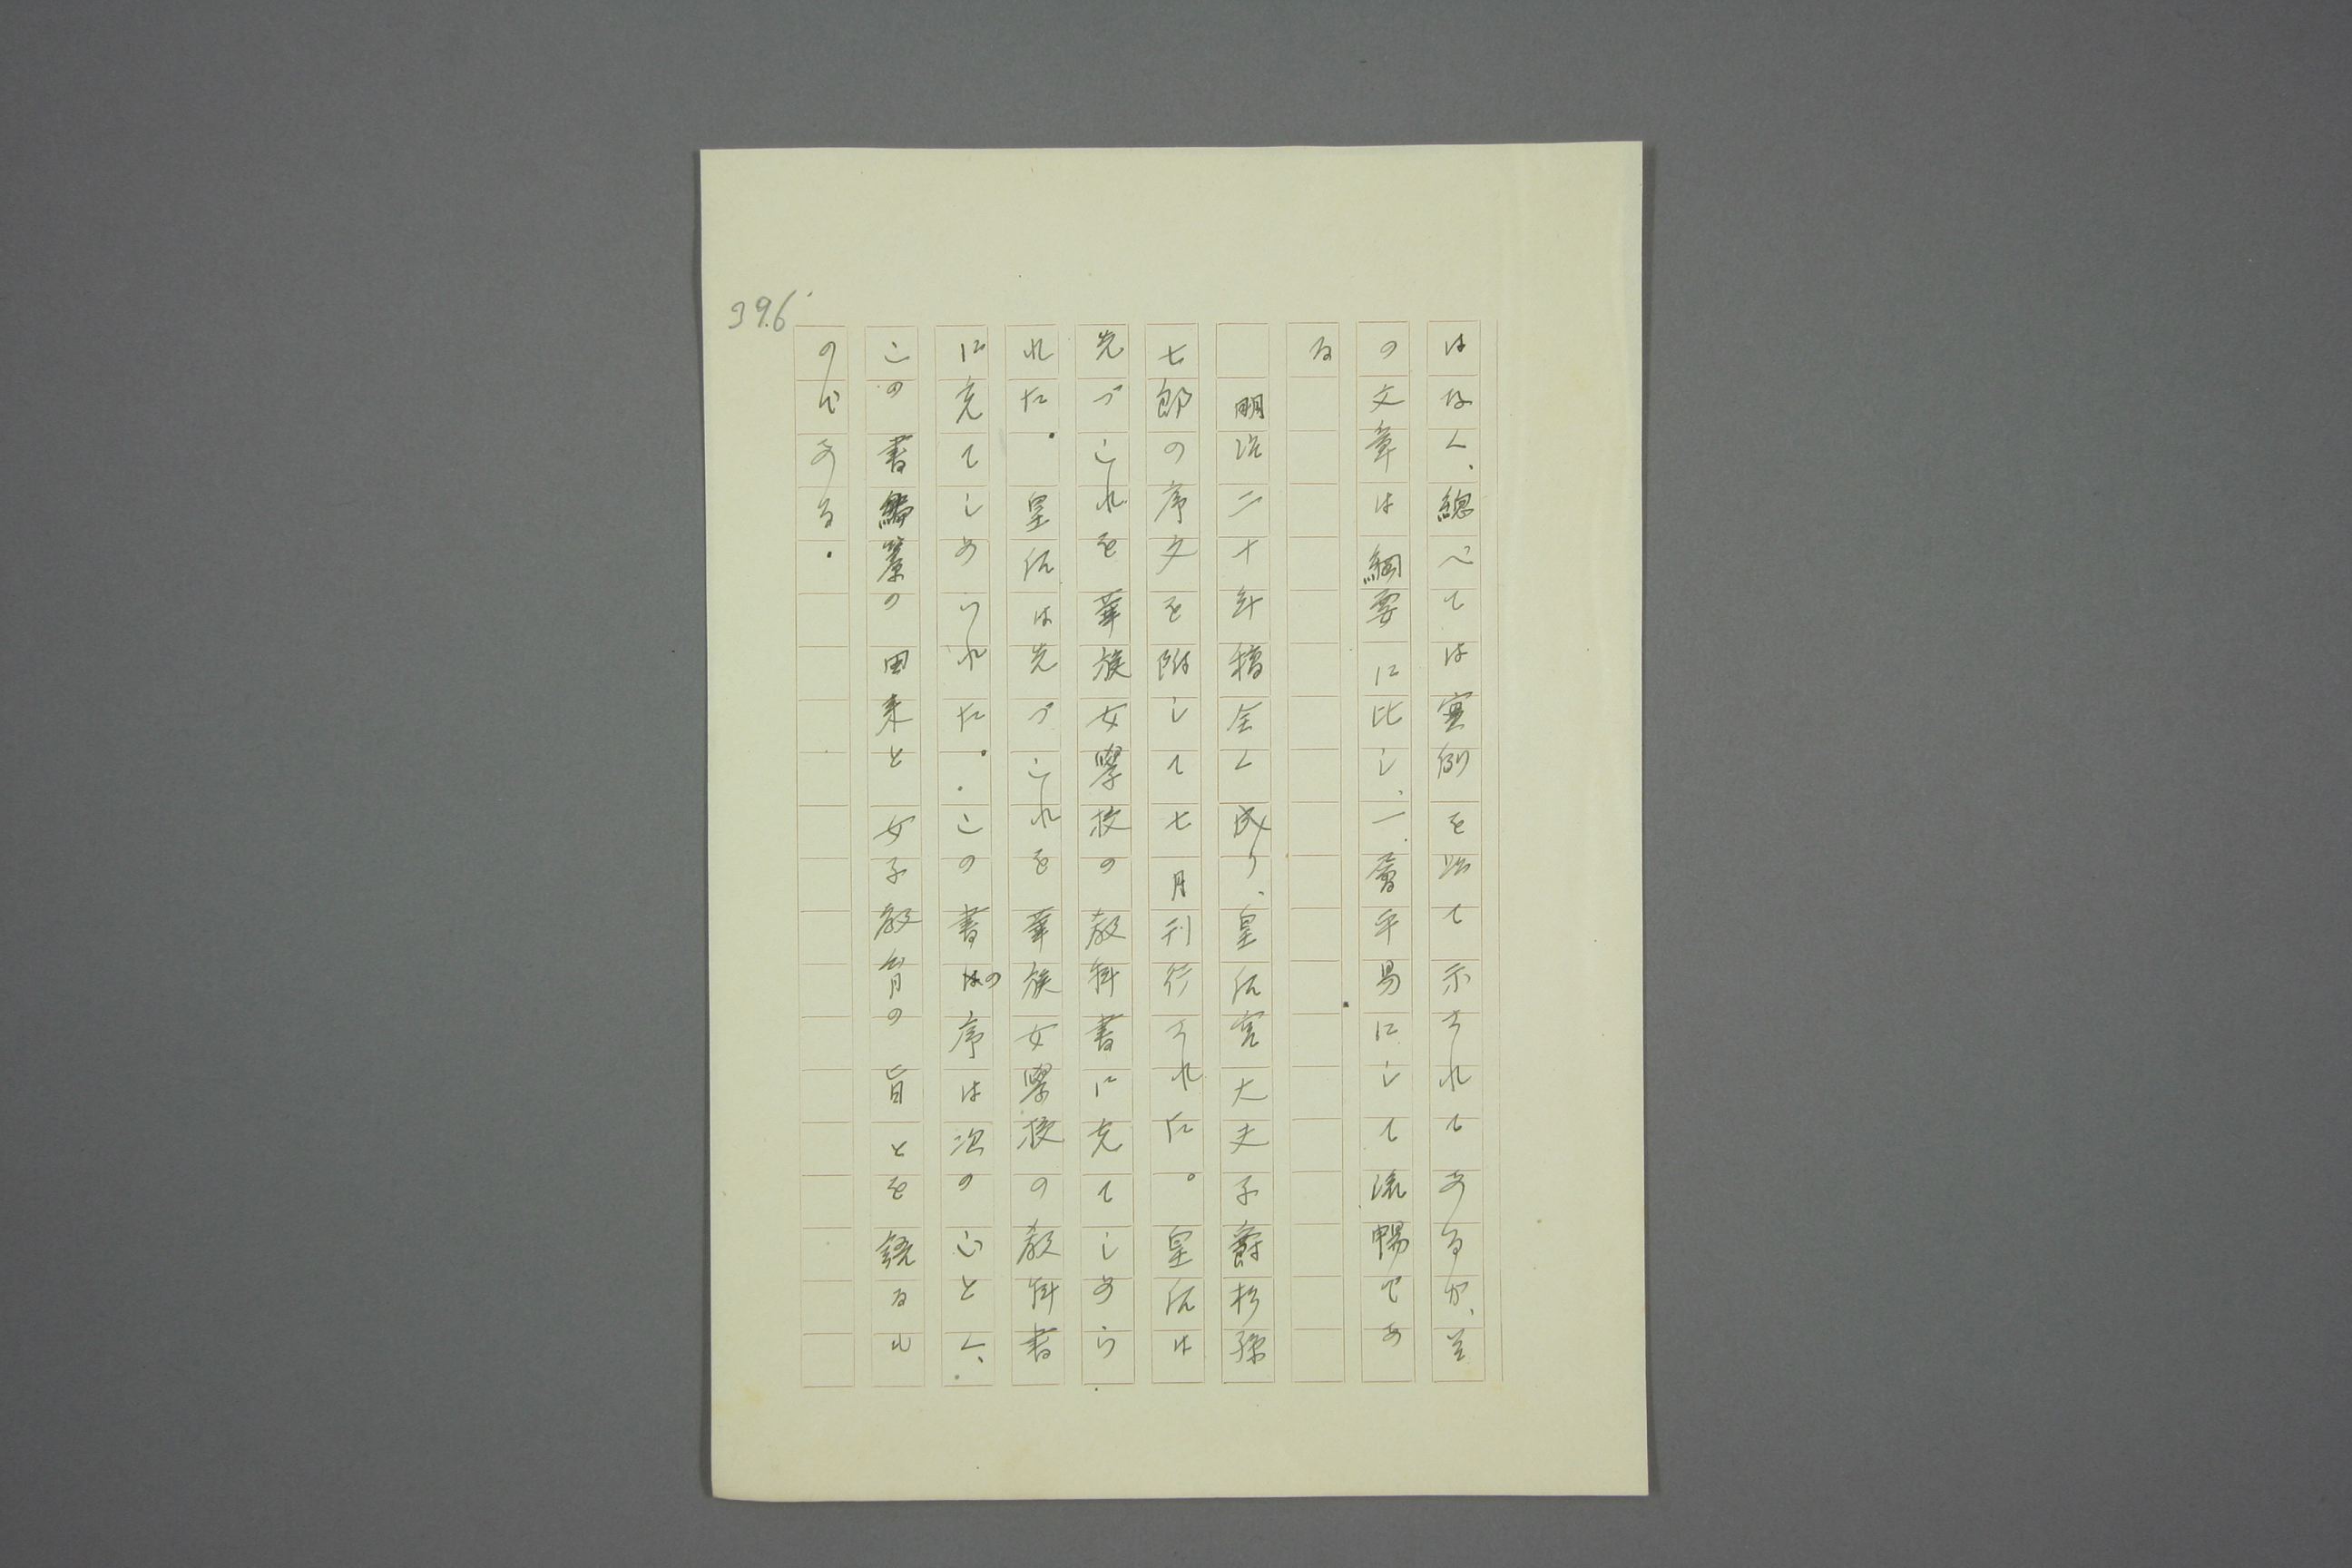 はなく、總べては實例を以て示されてあるが、並
の文章は綱要に比し、一層平易にして流暢であ
る
明治二十年稿全く成り、皇后宮大夫子爵杉孫
七郎の序文を附して七月刊行された。皇后は
先づこれを華族女學校の教科書に充てしめら
れた。皇后は先づこれを華族女學校の教科書
に充てしめられた。この書の序は次のごとく、
この書編纂の由来と女子教育の旨とを語るも
のである。
396